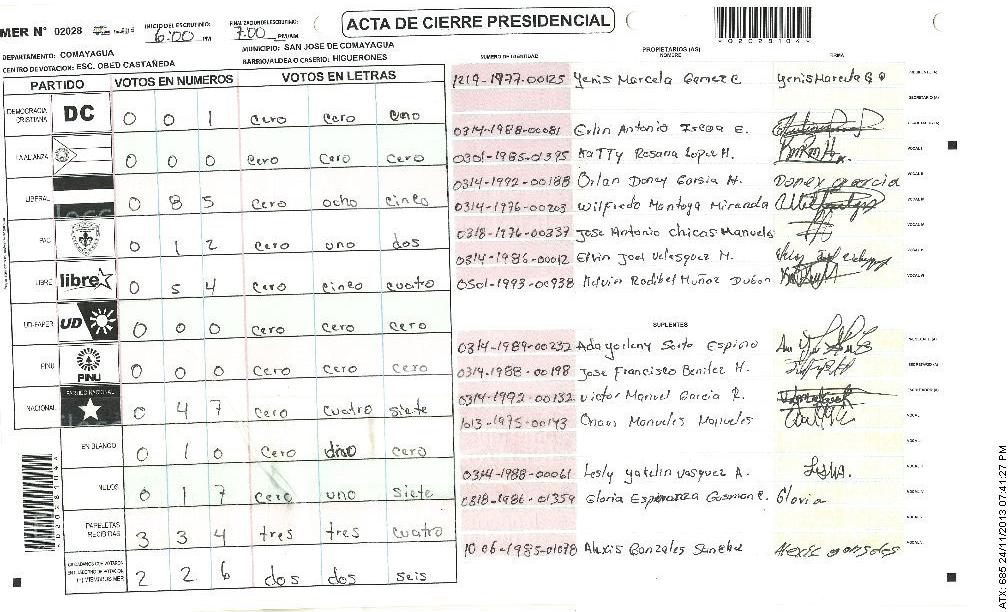 ACTA DE CIERRE PRESIDENCIAL
MER Nº 02028
INICIO DEL ESCRUTINIO: 6:00 PM
FINALIZACION DEL ESCRUTINIO: 7:00 PM/AM
DEPARTAMENTO: COMAYAGUA
MUNICIPIO: SAN JOSE DE COMAYAGUA
CENTRO DE VOTACION: ESC. OBED CASTAÑEDA
BARRIO/ALDEA O CASERIO: HIGUERONES
PARTIDO VOTOS EN NUMEROS VOTOS EN LETRAS
DEMOCRACIA CRISTIANA DC 0 0 1 cero cero uno
LA ALIANZA 0 0 0 cero cero cero
LIBERAL 0 8 5 cero ocho cinco
PAC 0 1 2 cero uno dos
LIBRE libre 0 5 4 cero cinco cuatro
UD-FAPER UD 0 0 0 cero cero cero
PINU PINU 0 0 0 cero cero cero
NACIONAL PARTIDO NACIONAL 0 4 7 cero cuatro siete
EN BLANCO 0 1 0 cero uno cero
NULOS 0 1 7 cero uno siete
PAPELETAS RECIBIDAS 3 3 4 tres tres cuatro
2 2 6 dos dos seis
NUMERO DE IDENTIDAD PROPIETARIOS (AS) NOMBRE FIRMA
1219-1977-00125 Yenis Marcela Gamez C.
SECRETARIO (A)
0314-1988-00081 Erlin Antonio E.
0301-1985-01395 KaTTy Rosana Lopez H. VOCAL I
0314-1992-00188 Orlan Doney Garsia H. Doney garcia VOCAL II
0314-1976-00203 Wilfredo Montoya Miranda
0318-1976-00337 Jose Antonio chicas Manueles
0314-1986-00012 Elvin Joel Velasquez M.
0501-1993-00938 Melvin Rodibel Muñoz Dubon
SUPLENTES
0314-1989-00232 Ada Soto Espino
0314-1988-00198 Jose Francisco Benitez H. SECRETARIO (A)
0314-1992-00132 victor Manuel Garcia R.
1013-1975-00143 Manueles Manueles
0314-1988-00061 Lesly yakelin vasquez A.
0318-1986-01359 Gloria Esperanza Gusman C. Gloria
1006-1985-01078 Alexis Gonzales Sanchez Alexis gonsales
ATX: 685 24/11/2013 07:41:27 PM